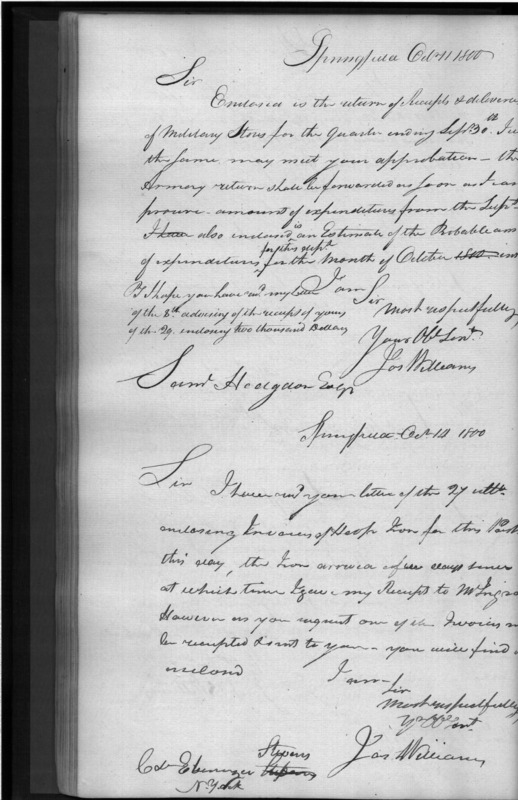 Springfield Oct 11 1800
Sir
Enclosed is the return of Receipts & deliveries
of Military Stores for the Quarter ending Sept 30th I
the same may meet your approbation — the
Armory return shall be forwarded as soon as I can
procure amount of expenditures from the Supt
I have also enclosed is an Estimate of the Probable am
of expenditures for this dept for the Month of October 1800 ins
I am Sir
P.S I hope you have recd my letter
of the 8th advising of the receipt of yours
of the 29. enclosing two thousand Dollars
Most respectfully
Your Obt Sert
Jos Williams
Saml Hodgdon Esqr
Springfield Oct 14 1800
Sir
I have recd your letter of the 27 ulto
enclosing Invoices of Hoop Iron for this Post
this day, the Iron arrived a few days since
at which time I gave my Receipt to Mr
However as you request one of the Invoices
be receipted & sent to you — you will find
enclosed
I am
Sir
Most respectfully
Yr Obt Sert
Jos Williams
Col Ebenezer Stevens
N. York